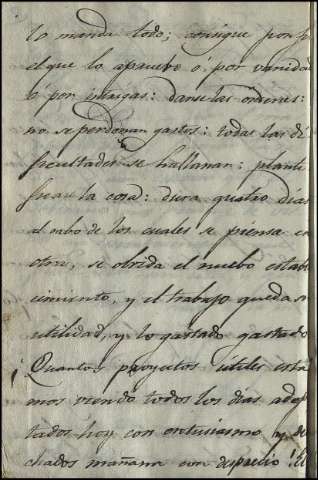 lo manda todo; consigue por
el que lo apruebe ó por vanidad
ó por intrigas: danse las ordenes:
no se perdonan gastos: todas las di
ficultades se hallanan: planti
ficase la cosa: dura quatro dias
al cabo de los cuales se piensa en
otra, se olvida el nuebo estable
cimiento, y el trabajo queda sin
utilidad, y lo gastado gastado
¡Quantos proyectos útiles esta
mos viendo todos los dias adop
tados hoy con entusiasmo y de
chados mañana con desprecio! El